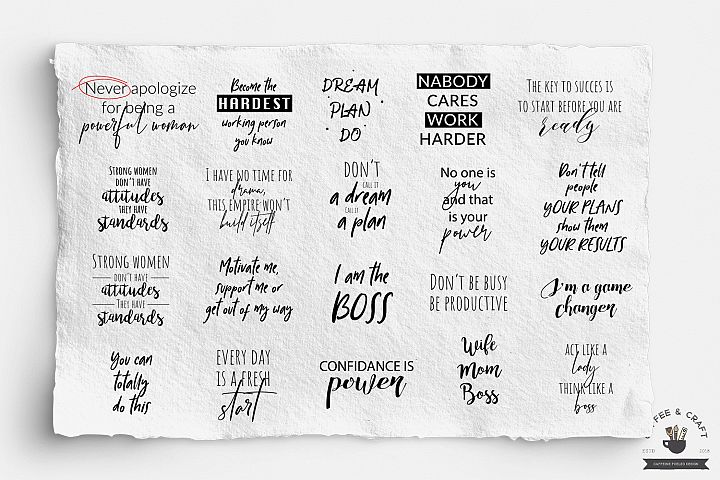 Never apologize
for being a
powerful woman
Become the
HARDEST
working person
you know
DREAM
PLAN
DO
NABODY
CARES
WORK
HARDER
THE KEY TO SUCCES IS
TO START BEFORE YOU ARE
ready
STRONG WOMEN
DON'T HAVE
attitudes
THEY HAVE
standards
I HAVE NO TIME FOR
drama,
THIS EMPIRE WON'T
build itself
DON'T
CALL IT
a dream
CALL IT
a plan
No one is
you
and that
is your
power
Don't tell
people
YOUR PLANS
show them
YOUR RESULTS
STRONG WOMEN
DON'T HAVE
attitudes
THEY HAVE
standards
Motivate me,
support me or
get out of my way
I am the
BOSS
DON'T BE BUSY
BE PRODUCTIVE
I'm a game
changer
You can
totally
do this
EVERY DAY
IS A FRESH
start
CONFIDANCE IS
power
Wife
Mom
Boss
ACT LIKE A
lady
THINK LIKE A
boss
COFFEE & CRAFT
ESTD 2018
CAFFEINE FUELED DESIGN